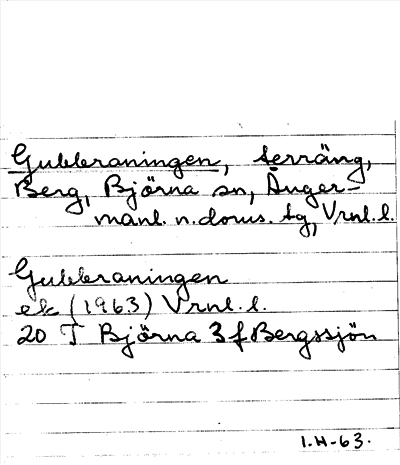 Gubbraningen, terräng,
Berg, Björna sn, Ånger-
manl. n. doms. tg, Vrnl. l.
Gubbraningen
ek (1963) Vrnl. l.
20 I Björna 3 f Bergssjön
I.H-63.